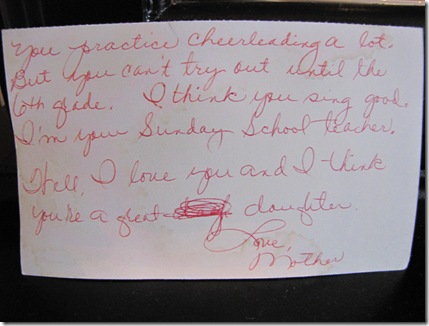 You practice cheerleading a lot.
But you can't try out until the
6th grade. I think you sing good.
I'm your Sunday School teacher.
Well, I love you and I think
you're a great daughter.
Love,
Mother